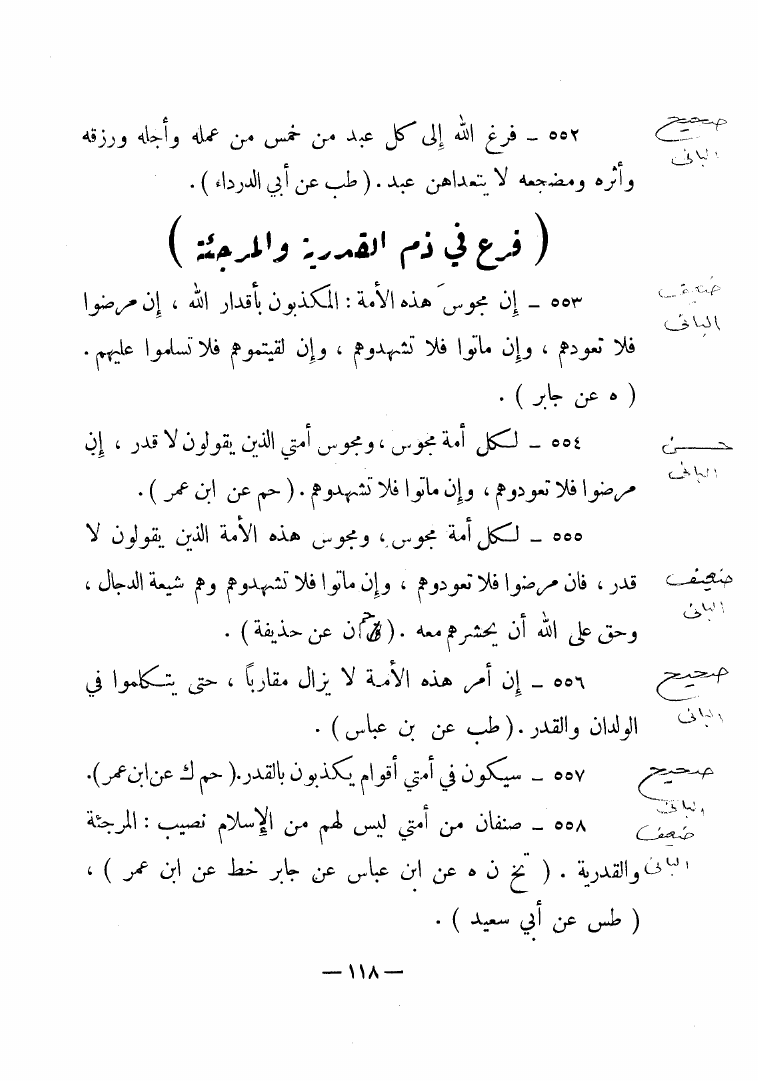 صحيح
الباني
٥٥٢ - فرغ الله إلى كل عبد من خمس من عمله وأجله ورزقه
وأثره ومضجعه لا يتعداهن عبد . ( طب عن أبي الدرداء ) .
( فرع في ذم القدرية والمرجئة )
ضعيف
الباني
٥٥٣ - إن مجوسَ هذه الأمة : المكذبون بأقدار الله ، إن مرضوا
فلا تعودهم ، وإن ماتوا فلا تشهدوهم ، وإن لقيتموهم فلا تسلموا عليهم .
( ه عن جابر ) .
حسن
الباني
٥٥٤ - لكل أمة مجوس ، ومجوس أمتي الذين يقولون لا قدر ، إن
مرضوا فلا تعودوهم ، وإن ماتوا فلا تشهدوهم . ( حم عن ابن عمر ) .
٥٥٥ - لكل أمة مجوس ، ومجوس هذه الأمة الذين يقولون لا
ضعيف
الباني
قدر ، فان مرضوا فلا تعودوهم ، وإن ماتوا فلا تشهدوهم وهم شيعة الدجال ،
وحق على الله أن يحشرهم معه . ( ن عن حذيفة ) .
صحيح
الباني
٥٥٦ - إن أمر هذه الأمة لا يزال مقارباً ، حتى يتكلموا في
الولدان والقدر . ( طب عن بن عباس ) .
صحيح
الباني
٥٥٧ - سيكون في أمتي أقوام يكذبون بالقدر. ( حم ك عن ابن عمر ).
ضعيف
الباني
٥٥٨ - صنفان من أمتي ليس لهم من الإسلام نصيب : المرجئة
والقدرية . ( تخ ن ه عن ابن عباس عن جابر خط عن ابن عمر ) ،
( طس عن أبي سعيد ) .
— ١١٨ —